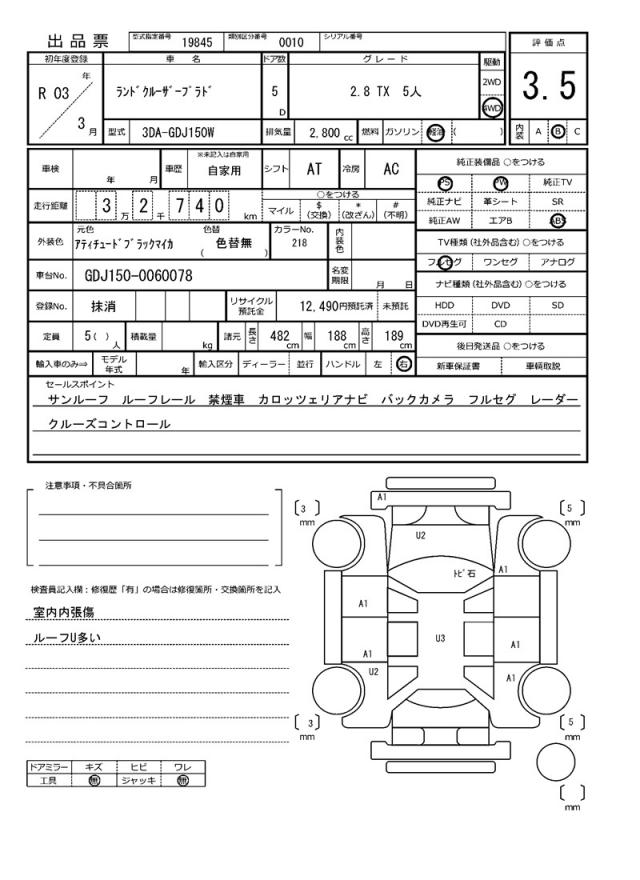 出品票 型式指定番号 19845 類別区分番号 0010 シリアル番号
評価点
3.5
内装 A B C
初年度登録 車名 ドア数 グレード 駆動
R 03 年 3 月 ﾗﾝﾄﾞｸﾙｰｻﾞｰﾌﾟﾗﾄﾞ 5 D 2.8 TX 5人 2WD 4WD
型式 3DA-GDJ150W 排気量 2,800 cc 燃料 ガソリン 軽油 ( )
車検 年 月 車歴 ※未記入は自家用 自家用 シフト AT 冷房 AC
走行距離 3 万 2 千 7 4 0 km ○をつける マイル $ (交換) * (改ざん) # (不明)
外装色 元色 ｱﾃｨﾁｭｰﾄﾞﾌﾞﾗｯｸﾏｲｶ 色替 ( 色替無 ) カラーNo. 218 内装色
車台No. GDJ150-0060078 名変期限 月 日
登録No. 抹消 リサイクル預託金 12,490円預託済 未預託
定員 5( ) 人 積載量 kg 諸元 長さ 482 cm 幅 188 cm 高さ 189 cm
輸入車のみ⇒ モデル年式 年 輸入区分 ディーラー 並行 ハンドル 左 右
純正装備品 ○をつける
PS PW 純正TV
純正ナビ 革シート SR
純正AW エアB ABS
TV種類 (社外品含む) ○をつける
フルセグ ワンセグ アナログ
ナビ種類 (社外品含む) ○をつける
HDD DVD SD
DVD再生可 CD
後日発送品 ○をつける
新車保証書 車輌取説
セールスポイント
サンルーフ ルーフレール 禁煙車 カロッツェリアナビ バックカメラ フルセグ レーダー
クルーズコントロール
注意事項・不具合箇所
検査員記入欄：修復歴「有」の場合は修復箇所・交換箇所を記入
室内内張傷
ルーフU多い
ドアミラー キズ ヒビ ワレ
工具 無 ジャッキ 無
[ 3 ] mm A1 [ 5 ] mm
U2
ﾄﾋﾞ石 A1
A1
U3
A1 A1
U2 A1
[ 3 ] mm [ 5 ] mm
[ ] mm